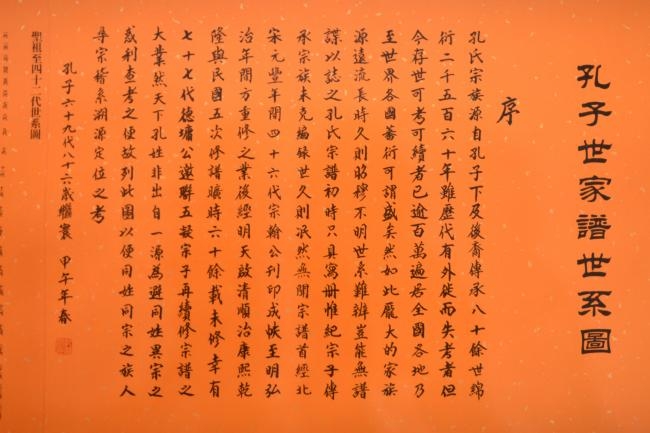 孔子世家譜世系圖
序
孔氏宗族源自孔子下及後裔傳承八十餘世綿
衍二千五百六十年雖歷代有外徙而失考者但
今存世可考可續者已逾百萬遍居全國各地乃
至世界各國蕃衍可謂盛矣然如此龐大的家族
源遠流長時久則昭穆不明世系難辦豈能無譜
諜以誌之孔氏宗譜初時只具寫冊惟紀宗子傳
承宗族未克編錄世久則泯然無聞宗譜首經北
宋元豐年間四十六代宗翰公刊印成帙至明弘
治年間方重修之業後經明天啟清順治康熙乾
隆與民國五次修譜曠時六十餘載未修幸有
七十七代德墉公邀聯五擬宗子再續修宗譜之
大業然天下孔姓非出自一源為避同姓異宗之
裁利查考之便故列此圖以便同姓同宗之族人
尋宗稽系溯源定位之考
孔子六十九代八十六歲繼寰 甲午年春
聖祖至四十二代世系圖